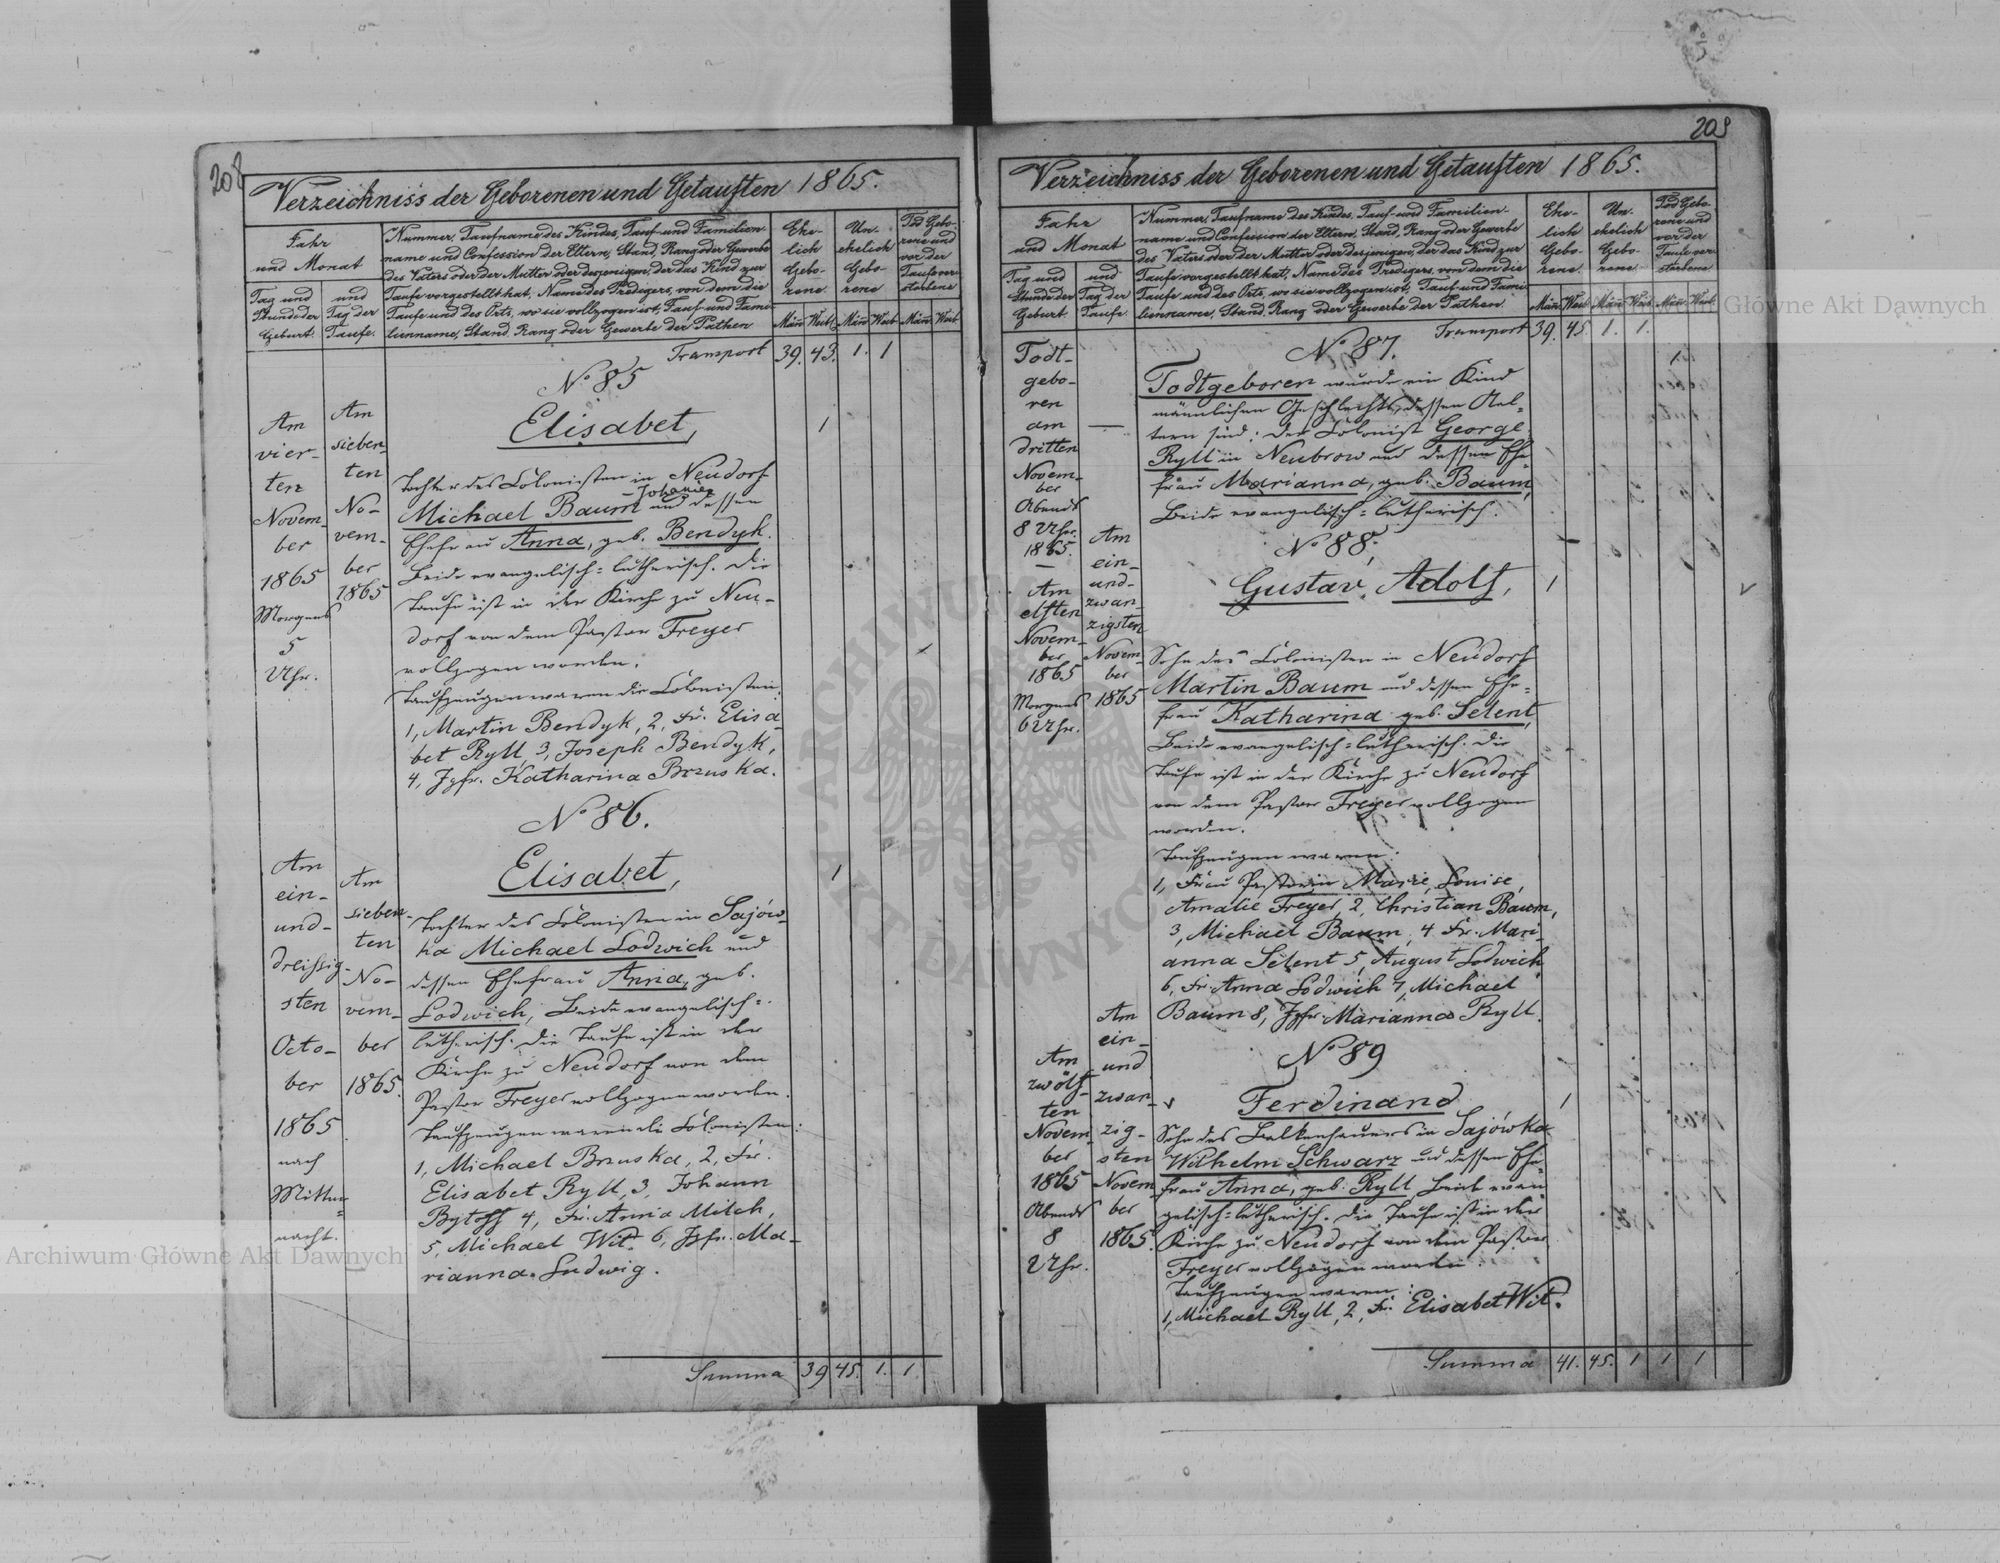 208
Verzeichniss der Geborenen und Getauften 1865.
Jahr
und Monat
Tag und
Stunde der
Geburt.
und
Tag der
Taufe.
Nummer, Taufname des Kindes, Tauf- und Familien-
name und Confession der Eltern, Stand, Rang oder Gewerbe
des Vaters oder der Mutter oder desjenigen, der das Kind zur
Taufe vorgestellt hat, Name des Predigers, von dem die
Taufe und des Orts, wo sie vollzogen ist, Tauf- und Fami-
lienname, Stand, Rang oder Gewerbe der Pathen
Ehe-
lich
Gebo-
rene
Un-
ehelich
Gebo-
rene
Tod Gebo-
rene und
vor der
Taufe ver-
storbene
Män Weib Män Weib Män Weib
Transport 39. 43. 1. 1
Am
vier-
ten
Novem-
ber
1865
Morgens
5
Uhr.
Am
sieben-
ten
No-
vem-
ber
1865
No 85
Elisabet, 1
Tochter des Colonisten in Neudorf
Michael Baum und dessen
Ehefrau Anna, geb. Bendyk.
Beide evangelisch=lutherisch. Die
Taufe ist in der Kirche zu Neu-
dorf von dem Pastor Freyer
vollzogen worden.
Taufzeugen waren die Colonisten:
1, Martin Bendyk, 2, Fr. Elisa-
bet Ryll, 3, Joseph Bendyk,
4, Jgfr. Katharina Bruska.
Am
ein-
und-
dreissig-
sten
Octo-
ber
1865
nach
Mitter=
nacht.
Am
sieben-
ten
No-
vem-
ber
1865.
No 86.
Elisabet, 1
Tochter des Colonisten in Sajów-
ka Michael Lodwich und
dessen Ehefrau Anna, geb.
Lodwich, Beide evangelisch=
lutherisch. Die Taufe ist in der
Kirche zu Neudorf von dem
Pastor Freyer vollzogen worden.
Taufzeugen waren die Colonisten:
1, Michael Bruska, 2, Fr.
Elisabet Ryll, 3, Johann
Bytoff 4, Fr. Anna Milch,
5, Michael Wit. 6, Jgfr. Ma-
rianna Ludwig.
Summa 39 45. 1. 1
209
Verzeichniss der Geborenen und Getauften 1865.
Jahr
und Monat
Tag und
Stunde der
Geburt.
und
Tag der
Taufe.
Nummer, Taufname des Kindes, Tauf- und Familien-
name und Confession der Eltern, Stand, Rang oder Gewerbe
des Vaters oder der Mutter oder desjenigen, der das Kind zur
Taufe vorgestellt hat, Name des Predigers, von dem die
Taufe und des Orts, wo sie vollzogen ist, Tauf- und Fami-
lienname, Stand, Rang oder Gewerbe der Pathen
Ehe-
lich
Gebo-
rene
Un-
ehelich
Gebo-
rene
Tod Gebo-
rene und
vor der
Taufe ver-
storbene
Män Weib Män Weib Män Weib
Transport 39. 45. 1. 1.
Todt-
gebo-
ren
am
dritten
Novem-
ber
Abends
8 Uhr.
1865.
No 87.
Todtgeboren wurde ein Kind
männlichen Geschlechts, dessen Ael-
tern sind: der Colonist George
Ryll in Neubrow und dessen Ehe-
frau Marianna, geb. Baum,
Beide evangelisch=lutherisch.
Am
elften
Novem-
ber
1865
Morgens
6 Uhr.
Am
ein-
und-
zwan-
zigsten
Novem-
ber
1865
No 88.
Gustav, Adolf, 1
Sohn des Colonisten in Neudorf
Martin Baum und dessen Ehe=
frau Katharina geb. Selent,
Beide evangelisch=lutherisch. Die
Taufe ist in der Kirche zu Neudorf
von dem Pastor Freyer vollzogen
worden.
Taufzeugen waren:
1, Frau Pastorin Marie, Louise,
Amalie Freyer, 2, Christian Baum,
3, Michael Baum, 4 Fr. Mari-
anna Selent 5, August Lodwich
6, Fr. Anna Lodwich 7, Michael
Baum 8, Jgfr. Marianna Ryll.
Am
zwölf-
ten
Novem-
ber
1865
Abends
8
Uhr.
Am
ein-
und
zwan-
zig-
sten
Novem-
ber
1865.
No 89
Ferdinand 1
Sohn des Balkenhauers in Sajówka
Wilhelm Schwarz und dessen Ehe-
frau Anna, geb. Ryll, Beide evan
gelisch=lutherisch. Die Taufe ist in der
Kirche zu Neudorf von dem Pastor
Freyer vollzogen worden.
Taufzeugen waren:
1, Michael Ryll, 2, Fr. Elisabet Wit.
Summa 41. 45. 1 1 1
Archiwum Główne Akt Dawnych
Główne Akt Dawnych